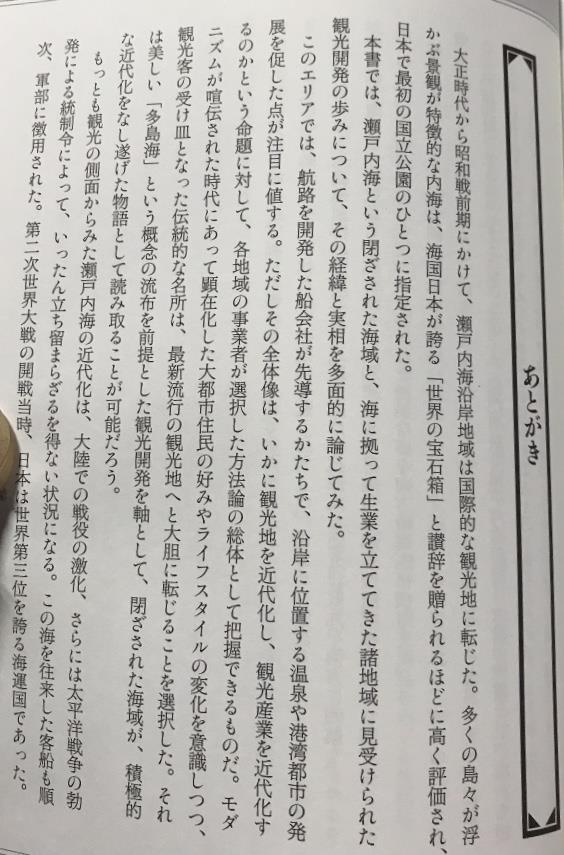 あとがき
大正時代から昭和戦前期にかけて、瀬戸内海沿岸地域は国際的な観光地に転じた。多くの島々が浮
かぶ景観が特徴的な内海は、海国日本が誇る「世界の宝石箱」と讃辞を贈られるほどに高く評価され、
日本で最初の国立公園のひとつに指定された。
本書では、瀬戸内海という閉ざされた海域と、海に拠って生業を立ててきた諸地域に見受けられた
観光開発の歩みについて、その経緯と実相を多面的に論じてみた。
このエリアでは、航路を開発した船会社が先導するかたちで、沿岸に位置する温泉や港湾都市の発
展を促した点が注目に値する。ただしその全体像は、いかに観光地を近代化し、観光産業を近代化す
るのかという命題に対して、各地域の事業者が選択した方法論の総体として把握できるものだ。モダ
ニズムが喧伝された時代にあって顕在化した大都市住民の好みやライフスタイルの変化を意識しつつ、
観光客の受け皿となった伝統的な名所は、最新流行の観光地へと大胆に転じることを選択した。それ
は美しい「多島海」という概念の流布を前提とした観光開発を軸として、閉ざされた海域が、積極的
な近代化をなし遂げた物語として読み取ることが可能だろう。
もっとも観光の側面からみた瀬戸内海の近代化は、大陸での戦役の激化、さらには太平洋戦争の勃
発による統制令によって、いったん立ち留まらざるを得ない状況になる。この海を往来した客船も順
次、軍部に徴用された。第二次世界大戦の開戦当時、日本は世界第三位を誇る海運国であった。